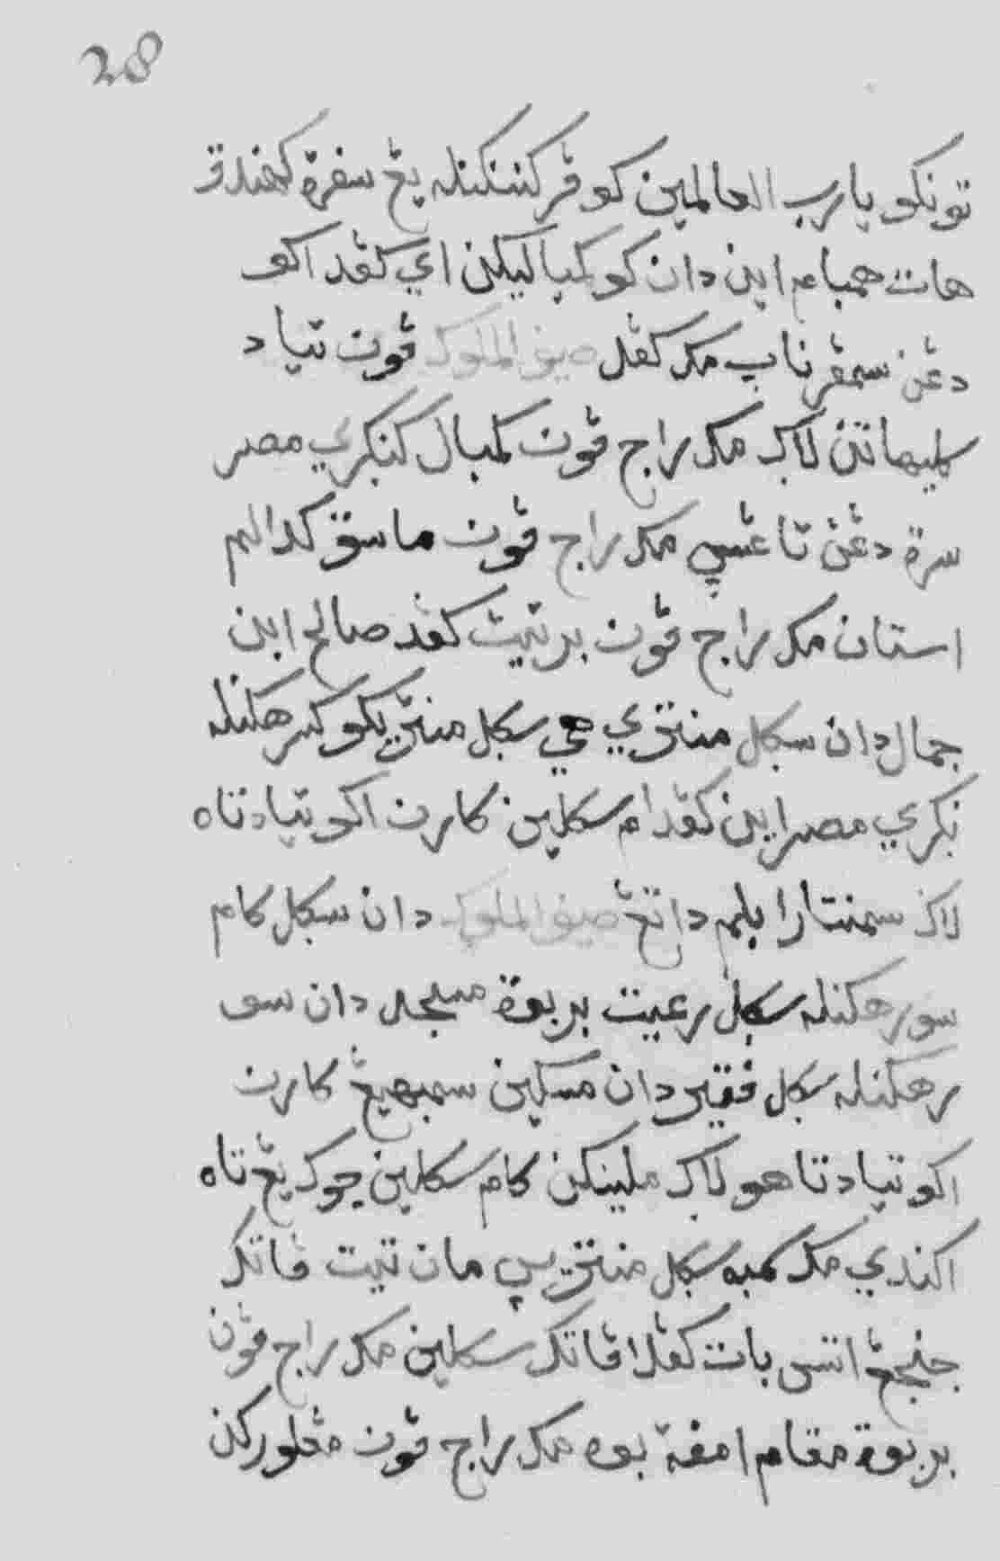 28
توانكو يارب العالمين كو ڤركننكنله يڠ سفرة كهندق
هات همبام اين دان كو كمباليكن اي كڤد اكو
دڠن سمڤرناڽ مك كڤد صيف الملوك ڤون تياد
كليهاتن لاݢ مك راج ڤون كمبال كنݢري مصر
سرة دڠن تاڠيسڽ مك راج ڤون ماسق كدالم
استان مك راج ڤون برتيته كڤد صالح ابن
جمال دان سݢل منتري هي سݢل منتريكو كرهكنله
نݢري مصر اين كڤدام سكلين كارن اكو تياد تاه
لاݢ سمنتارا بلم داتڠ صيف الملوك دان سݢل كام
سورهكنله سݢل رعيت بربوة مسجد دان سو
رهكنله سݢل فقير دان مسكين سمبهيڠ كارن
اكو تياد تاهو لاݢ ملينكن كام سكلين جوݢ يڠ تاه
اكندي مك سمبه سݢل منتريڽ مان تيته ڤاتك
جنجڠ اتس بات كڤلا ڤاتك سكلين مك راج ڤون
بربوة مقام امڤة بوه مك راج ڤون مڠلوركن